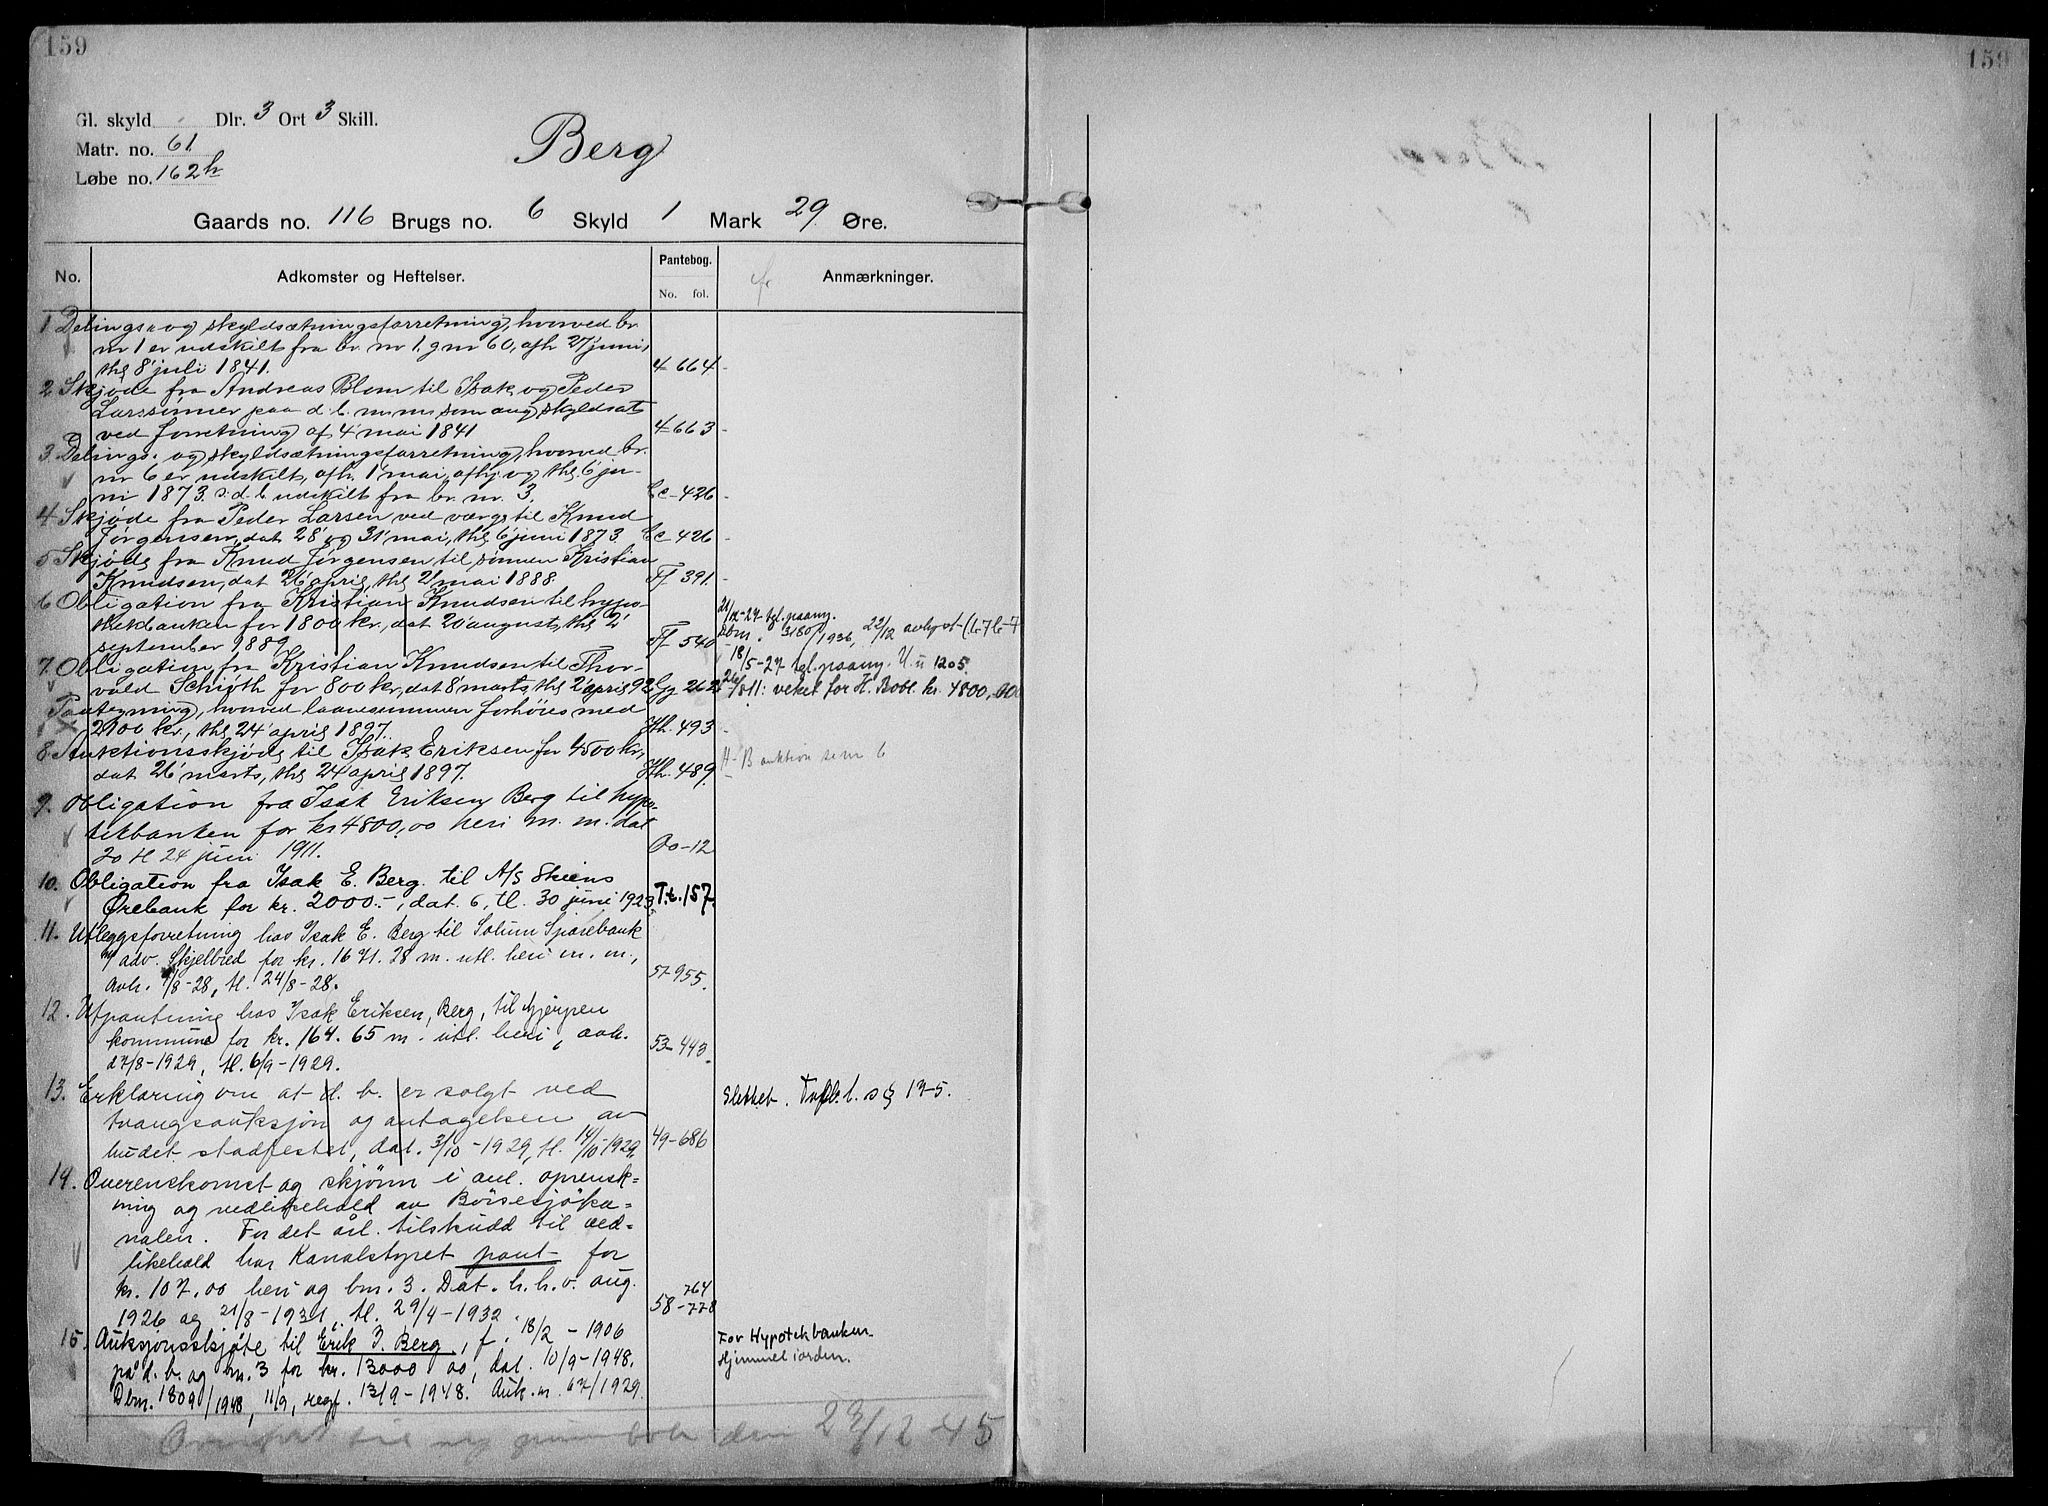 159
159
Gl. skyld Dlr. 3 Ort 3 Skill.
Matr. no. 61
Løbe no. 162h
Berg
Gaards no. 116 Brugs no. 6 Skyld 1 Mark 29 Øre.
No. Adkomster og Heftelser. Pantebog. No. fol. Anmærkninger.
1 Delings- og skyldsætningsforretning, hvorved br.
nr 1 er udskilt fra br. nr 1. g nr 60, afh 27 juni,
thl 8' juli 1841. 4 664
2 Skjøde fra Andreas Blom til Isak og Peder
Larssønner paa d. b. m. m. som ang skyldsat
ved forretning af 4' mai 1841 4 663
3. Delings- og skyldsætningsforretning, hvorved br.
nr 6 er udskilt, afh. 1' mai, afhj og thl. 6' ju-
ni 1873. d. b. udskilt fra br. nr. 3. Cc-426
4 Skjøde fra Peder Larsen ved værge til Knud
Jørgensen, dat 28' og 31' mai, thl 6' juni 1873. Cc-426
5 Skjøde fra Knud Jørgensen til sønnen Kristian
Knudsen, dat 26' april, thl 2' mai 1888. Ff 391
6 Obligation fra Kristian Knudsen til hypo-
thekbanken for 1800 kr., dat 20' august, thl 2'
september 1889 Ff 540
7. Obligation fra Kristian Knudsen til Thor-
vald Schiøth for 800 kr, dat 8' marts, thl 2' april 92 Gg 262
18/5-27 tgl. paamg. U. u 1205
26/8 11: veket for H. Bobl. kr. 4800,00
Paategning, hvorved laanesummen forhøies med
2100 kr., thl 24' april 1897. Hh. 493
8 Auktionsskjøde til Isak Eriksen for 4500 kr,
dat 26' marts, thl 24' april 1897. Hh. 489. H-B auktion sem 6
9. Obligation fra Isak Eriksen Berg til hypo-
tekbanken for kr 4800,00 heri m. m. dat
20 tl 24 juni 1911. Oo-12
10. Obligation fra Isak E. Berg. til A/S Skiens
Ørebank for kr. 2000.-, dat. 6, tl. 30 juni 1923. T.t. 157.
11. Utleggsforretning hos Isak E. Berg til Solum Sparebank
v/ adv. Skjelbred for kr. 1671.28 m. utl. heri m. m.,
avh. 7/8-28, tl. 24/8-28. 57-955.
12. Utpantning hos Isak Eriksen, Berg, til Gjerpen
kommune for kr. 164.65 m. utl. heri, avh.
27/8-1929, tl. 6/9-1929. 53-443.
13. Erklæring om at d. b. er solgt ved
tvangsauksjon og antagelsen av
budet stadfestet, dat. 3/10-1929, tl. 14/10-1929. 49-686
Slettet. Tvfbl. l. s § 17-5.
14. Overenskomst og skjønn i anl. oprensk-
ning og vedlikehold av Börsesjöka-
nalen. For det årl. tilskudd til ved-
likehold har Kanalstyret pant for
kr. 107.00 heri og bnr. 3. Dat. h. h. v. aug.
1926 og 21/8-1931, tl. 29/4-1932. 58-764 -778
15. Auksjonsskjøte til Erik I. Berg, f. 18/2-1906
på d. b. og bnr. 3 for kr. 13000 00, dat. 10/9-1948.
Dbnr. 1809/1948, 11/9, regf. 13/9-1948. Auk. nr. 67/1929.
For Hypotekbanken.
Hjemmel i orden.
Overført til ny grunnbok den 23/12 45